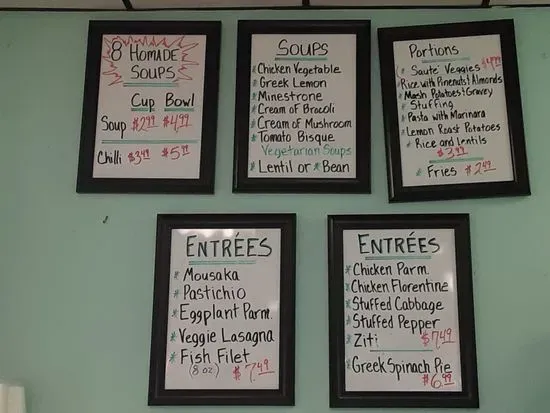 8 HOMADE
SOUPS
Cup Bowl
Soup $2.99 $4.99
Chilli $3.49 $5.99
SOUPS
* Chicken Vegetable
* Greek Lemon
* Minestrone
* Cream of Brocoli
* Cream of Mushroom
* Tomato Bisque
Vegetarian Soups
* Lentil or * Bean
Portions
* Sauté Veggies $4.99
Rice with Pinenuts & Almonds
* Mash Potatoes & Gravey
* Stuffing
* Pasta with Marinara
* Lemon Roast Potatoes
* Rice and Lentils
$3.99
* Fries $2.49
ENTRÉES
* Mousaka
* Pastichio
* Eggplant Parm.
* Veggie Lasagna
* Fish Filet
(8 oz) $7.49
ENTRÉES
* Chicken Parm.
* Chicken Florentine
* Stuffed Cabbage
* Stuffed Pepper
* Ziti $7.49
* Greek Spinach Pie
$6.99